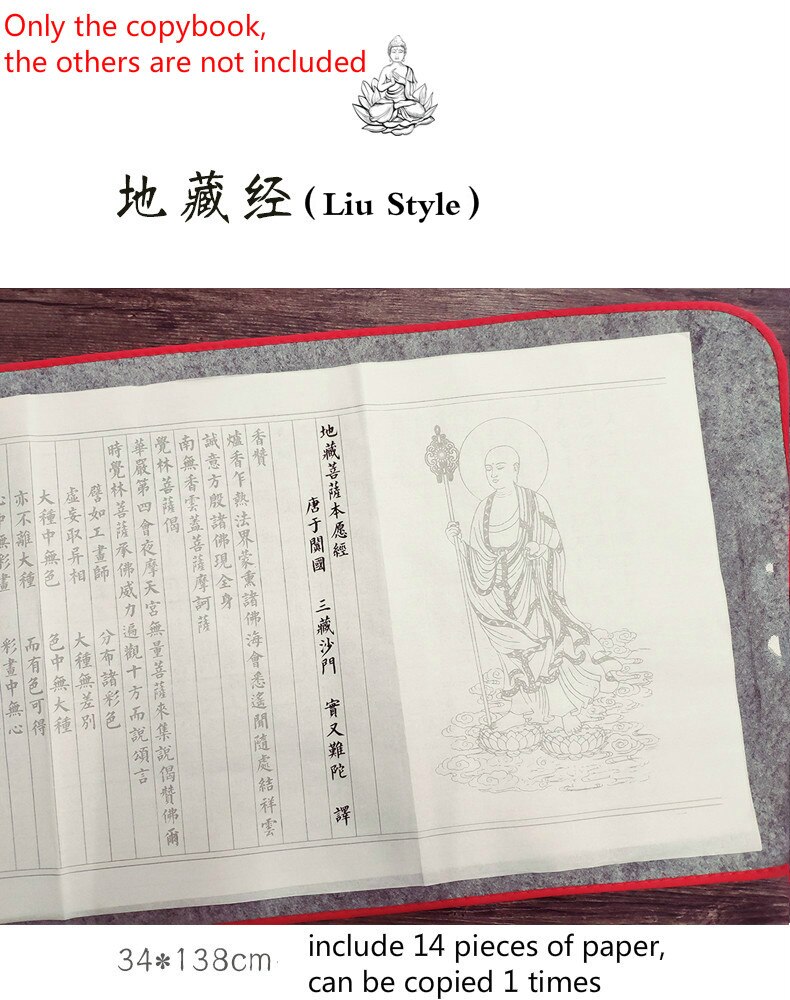 Only the copybook,
the others are not included
地藏经(Liu Style)
地藏菩薩本愿經
唐于闐國 三藏沙門 實又難陀 譯
香贊
爐香乍熱法界蒙熏諸佛海會悉遙聞隨處結祥雲
誠意方殷諸佛現全身
南無香雲蓋菩薩摩訶薩
覺林菩薩偈
華嚴第四會夜摩天宮無量菩薩來集說偈贊佛爾
時覺林菩薩承佛威力遍觀十方而說頌言
譬如工畫師 分布諸彩色
虛妄取異相 大種無差別
大種中無色 色中無大種
亦不離大種 而有色可得
心中無彩畫 彩畫中無心
34*138cm
include 14 pieces of paper,
can be copied 1 times